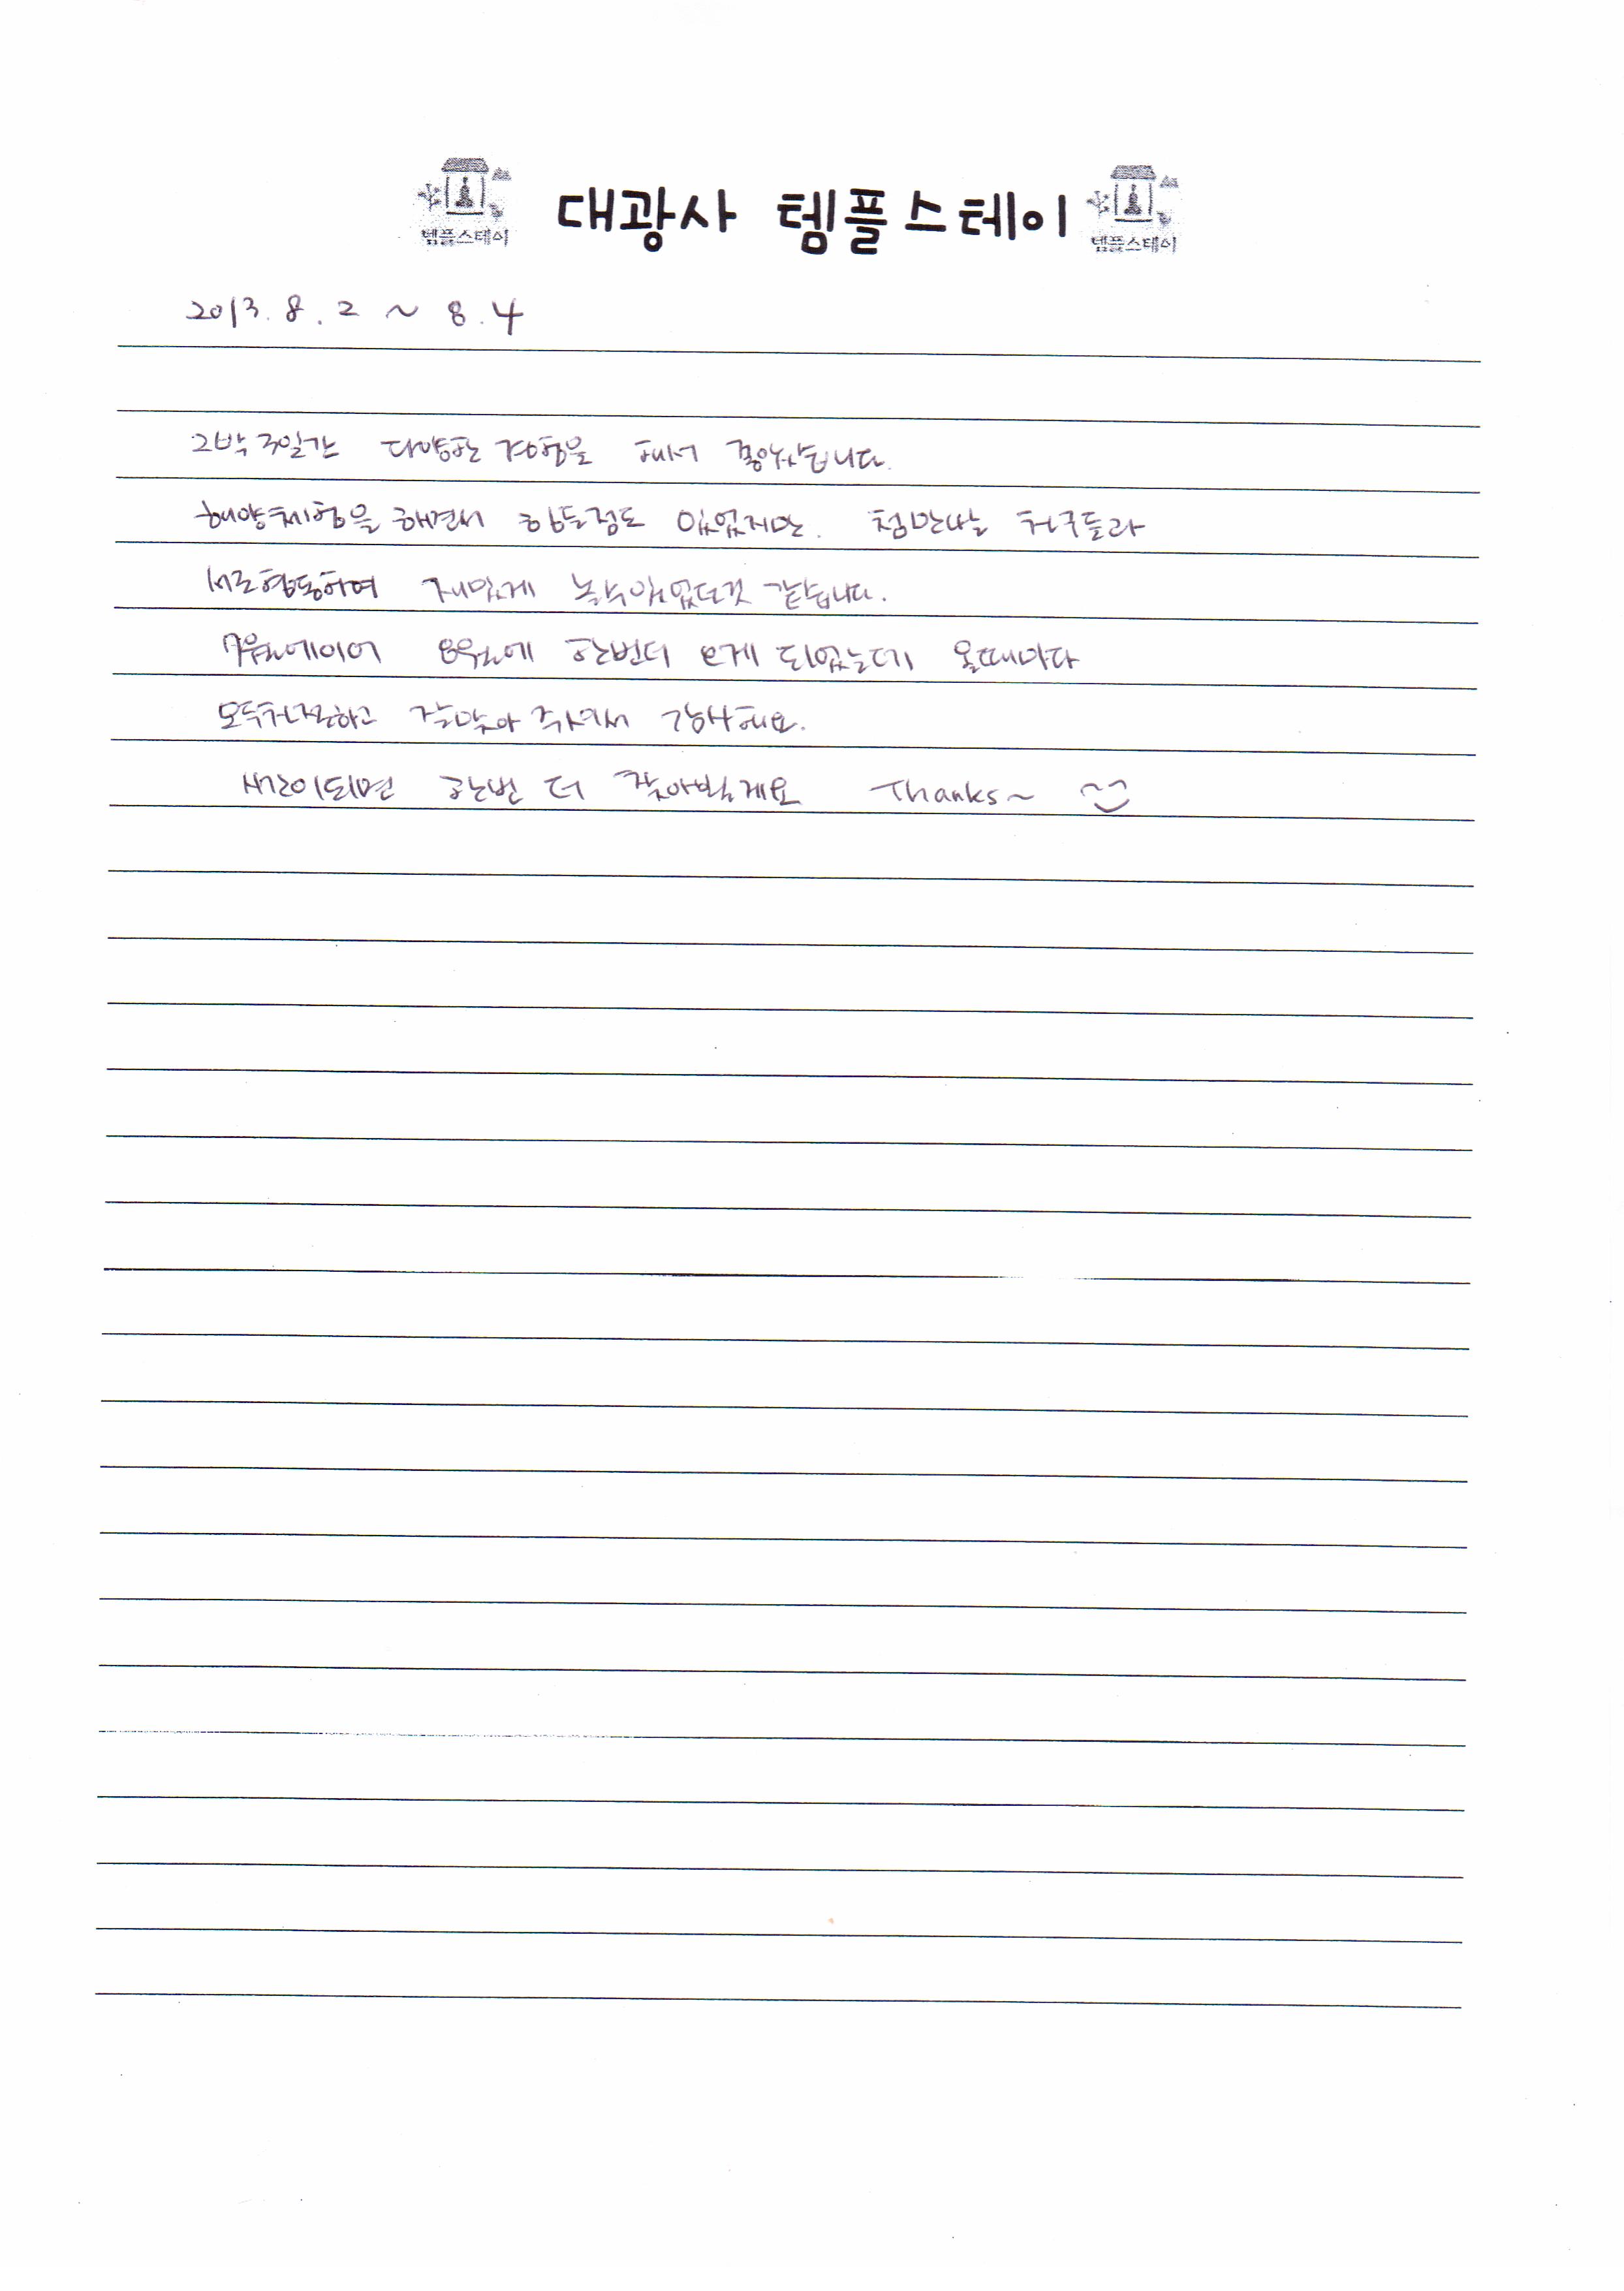 템플스테이 대광사 템플스테이 템플스테이
2013. 8. 2 ~ 8. 4
2박 3일간 다양한 경험을 해서 좋았습니다.
해양체험을 하면서 힘든점도 있었지만. 첨만나는 친구들과
서로협동하여 재밌게 놀수있었던것 같습니다.
7월에이어 8월에 한번더 오게 되었는데 올때마다
모두친절하고 잘맞아 주셔서 감사해요.
시간이되면 한번 더 찾아뵐게요 Thanks~